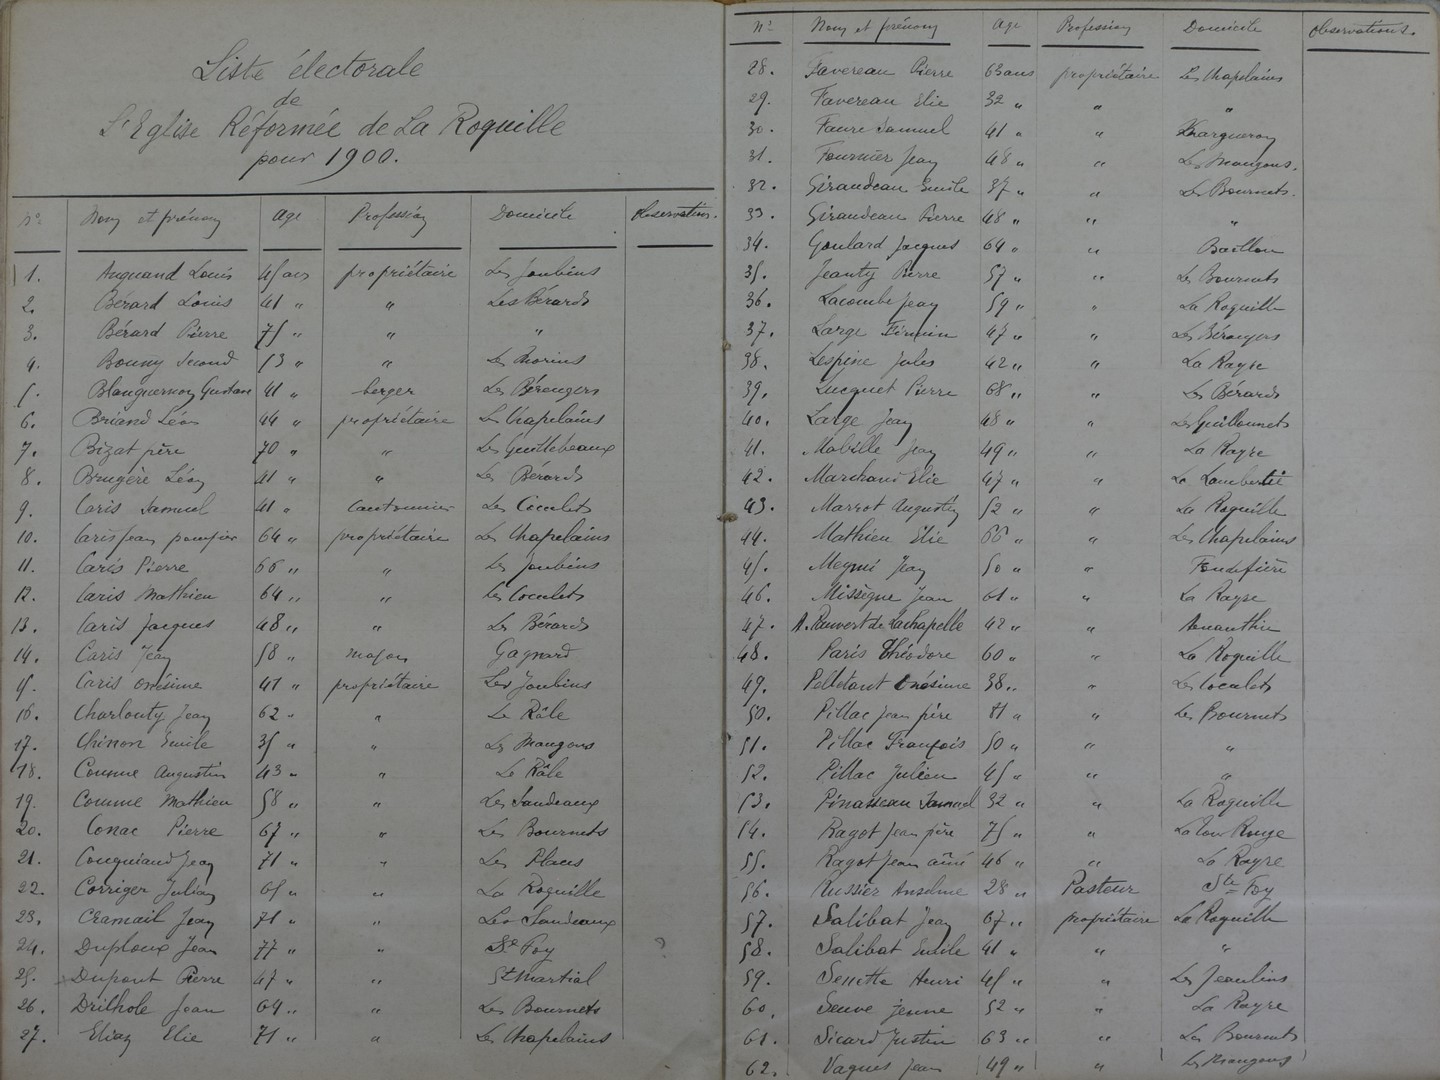 Liste électorale
de
L'Eglise Réformée de La Roquille
pour 1900.
N° Nom et prénom Age Profession Domicile Observation.
1. Auguand Louis 45 ans propriétaire Les Joubins
2. Bérard Louis 41 " " Les Bérards
3. Bérard Pierre 75 " " "
4. Bonny Second 53 " " Les Morins
5. Blanquernon Gustave 41 " berger Les Bérengers
6. Briand Léon 44 " propriétaire Les Chapelains
7. Bizat père 70 " "
8. Brugère Léon 41 " " Les Bérards
9. Caris Samuel 41 " Cantonnier Les Cocalets
10. Caris Jean 64 " propriétaire Les Chapelains
11. Caris Pierre 66 " " Les Joubins
12. Caris Mathieu 64 " " Les Cocalets
13. Caris Jacques 48 " " Les Bérards
14. Caris Jean 58 " maçon Gagnard
15. Caris Onésime 47 " propriétaire Les Joubins
16. Charlouty Jean 62 " " Le Râle
17. Chinon Emile 35 " " Les Mangons
18. Comme Augustin 43 " " Le Râle
19. Comme Mathieu 58 " " Les Sandeaux
20. Conac Pierre 67 " " Les Bournets
21. Couquiaud Jean 71 " " Les Places
22. Corriger Julien " " La Roquille
23. Cramail Jean 71 " " Les Sandeaux
24. Duploux Jean 77 " " Ste Foy ?
25. Dupont Pierre 47 " " St Martial
26. Drilhole Jean 64 " " Les Bournets
27. Eliaz Elie 71 " " Les Chapelains
N° Nom et prénom Age Profession Domicile Observations.
28. Favereau Pierre 63 ans propriétaire Les Chapelains
29. Favereau Elie 32 " " "
30. Faure Samuel 41 " "
31. Fournier Jean 48 " " Les Mangons.
32. Girandeau Emile 37 " " Les Bournets.
33. Girandeau Pierre 48 " " "
34. Goulard Jacques 64 " " Baillon
35. Jeanty Pierre 57 " " Les Bournets
36. Lacombe Jean 59 " " La Roquille
37. Large Firmin 47 " " Les Bérengers
38. Lespine Jules 42 " " La Rayre
39. Lucquet Pierre 68 " " Les Bérards
40. Large Jean 48 " " Les Guillonnets
41. Mabille Jean 49 " " La Rayre
42. Marchand Elie 47 " " La Lambertie
43. Marrot Augustin 52 " " La Roquille
44. Mathieu Elie 66 " " Les Chapelains
45. Meynié Jean 50 " "
46. Missègue Jean 61 " " La Rayre
47. A. Rauvert de Lachapelle 42 " "
48. Paris Théodore 60 " " La Roquille
49. Pelletant Onésime 38 " " Les Cocalets
50. Pillac Jean père 81 " " Les Bournets
51. Pillac François 50 " " "
52. Pillac Julien 45 " " "
53. Pinasseau Samuel 32 " " La Roquille
54. Ragot Jean père 75 " " La Tour Rouge
55. Ragot Jean aîné 46 " " La Rayre
56. Russier Anselme 28 " Pasteur Ste Foy
57. Salibat Jean 67 " propriétaire La Roquille
58. Salibat Emile 41 " " "
59. Senette Henri 45 " " Les Jeaulins
60. Seuve jeune 52 " " La Rayre
61. Sicard Justin 63 " " Les Bournets
62. Vagues Jean 49 " " Les Mangons